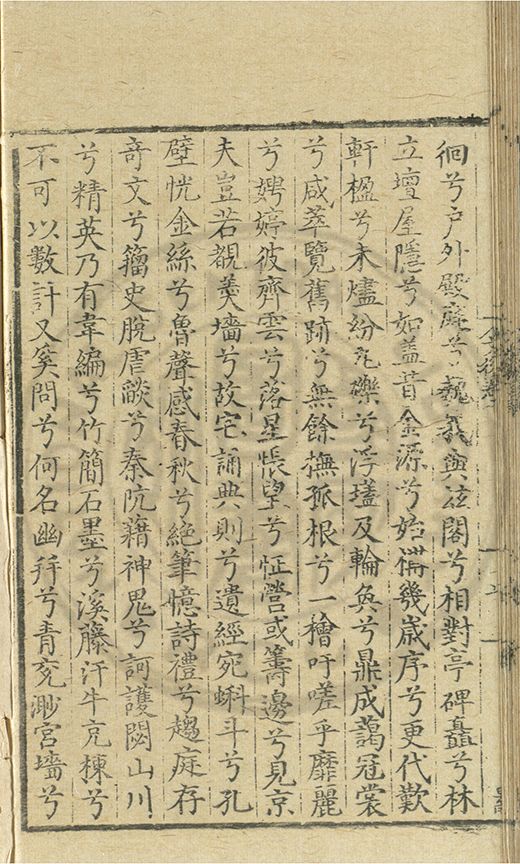 徊兮户外殿廡兮巍峩與法閣兮相對亭碑矗兮林
立壇屋隱兮如盖昔金源兮始構幾歲序兮更代歎
軒楹兮未燼紛瓦礫兮浮壒及輪奐兮鼎成藹冠裳
兮咸萃覽舊跡兮無餘撫孤根兮一檜吁嗟乎靡麗
兮娉婷彼齊雲兮落星悵望兮怔營或籌邊兮見京
夫豈若觀羮墻兮故宅誦典則兮遺經宛蝌斗兮孔
壁恍金絲兮魯聲感春秋兮絶筆憶詩禮兮趨庭存
竒文兮籀史脫虐燄兮秦阬藉神鬼兮訶護閟山川
兮精英乃有韋編兮竹簡石墨兮溪藤汗牛充棟兮
不可以數計又奚問兮何名幽拜兮青兖渺宫墻兮